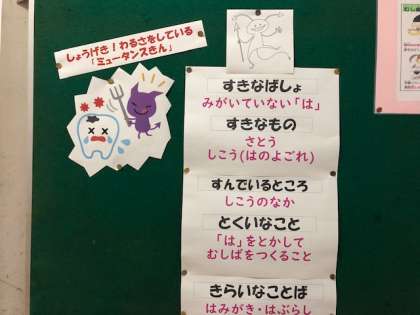 しょうげき！わるさをしている
「ミュータンスきん」
すきなばしょ
みがいていない「は」
すきなもの
さとう
しこう(はのよごれ)
すんでいるところ
しこうのなか
とくいなこと
「は」をとかして
むしばをつくること
きらいなことば
はみがき・はぶらし